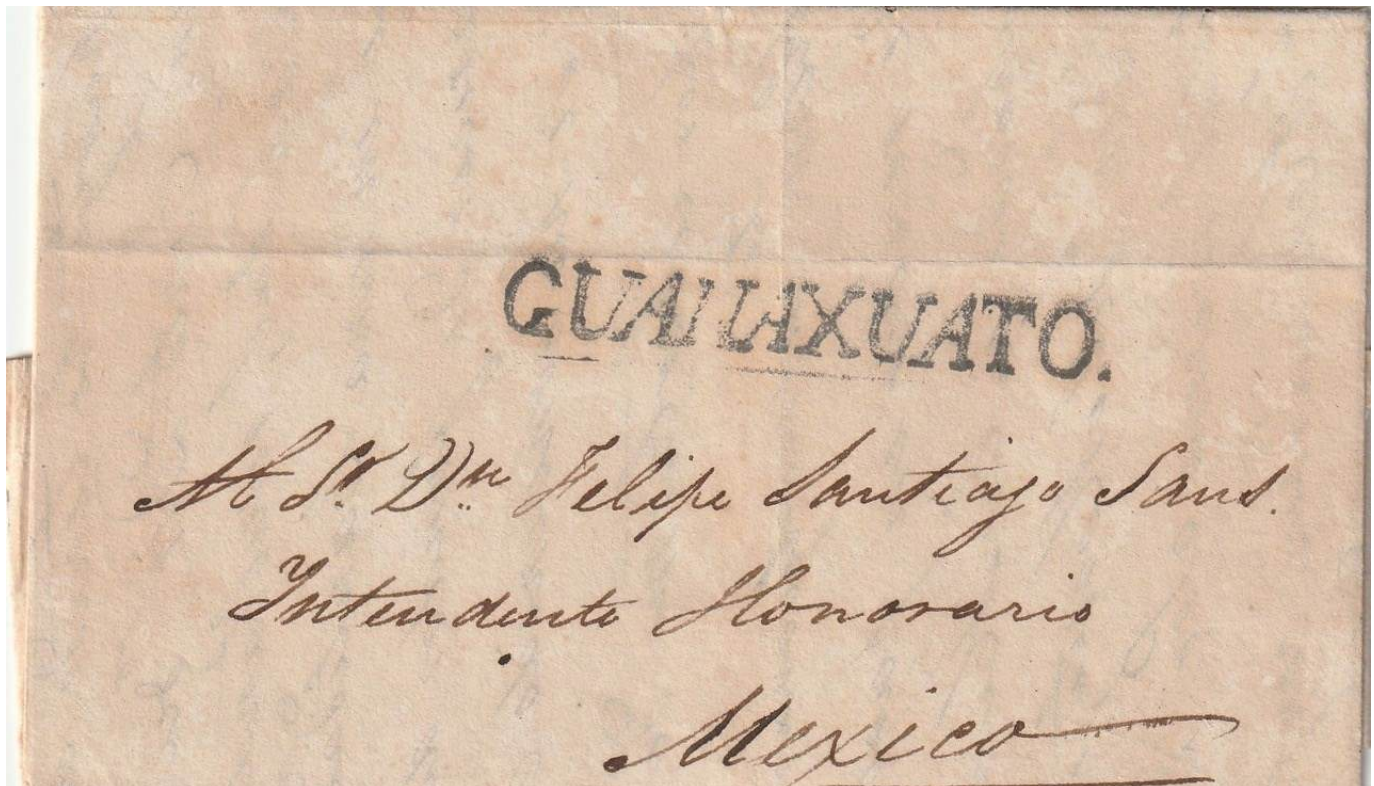 GUANAXUATO.
Al Sr. Dn. Felipe Santiago Sans.
Intendente Honorario
Mexico